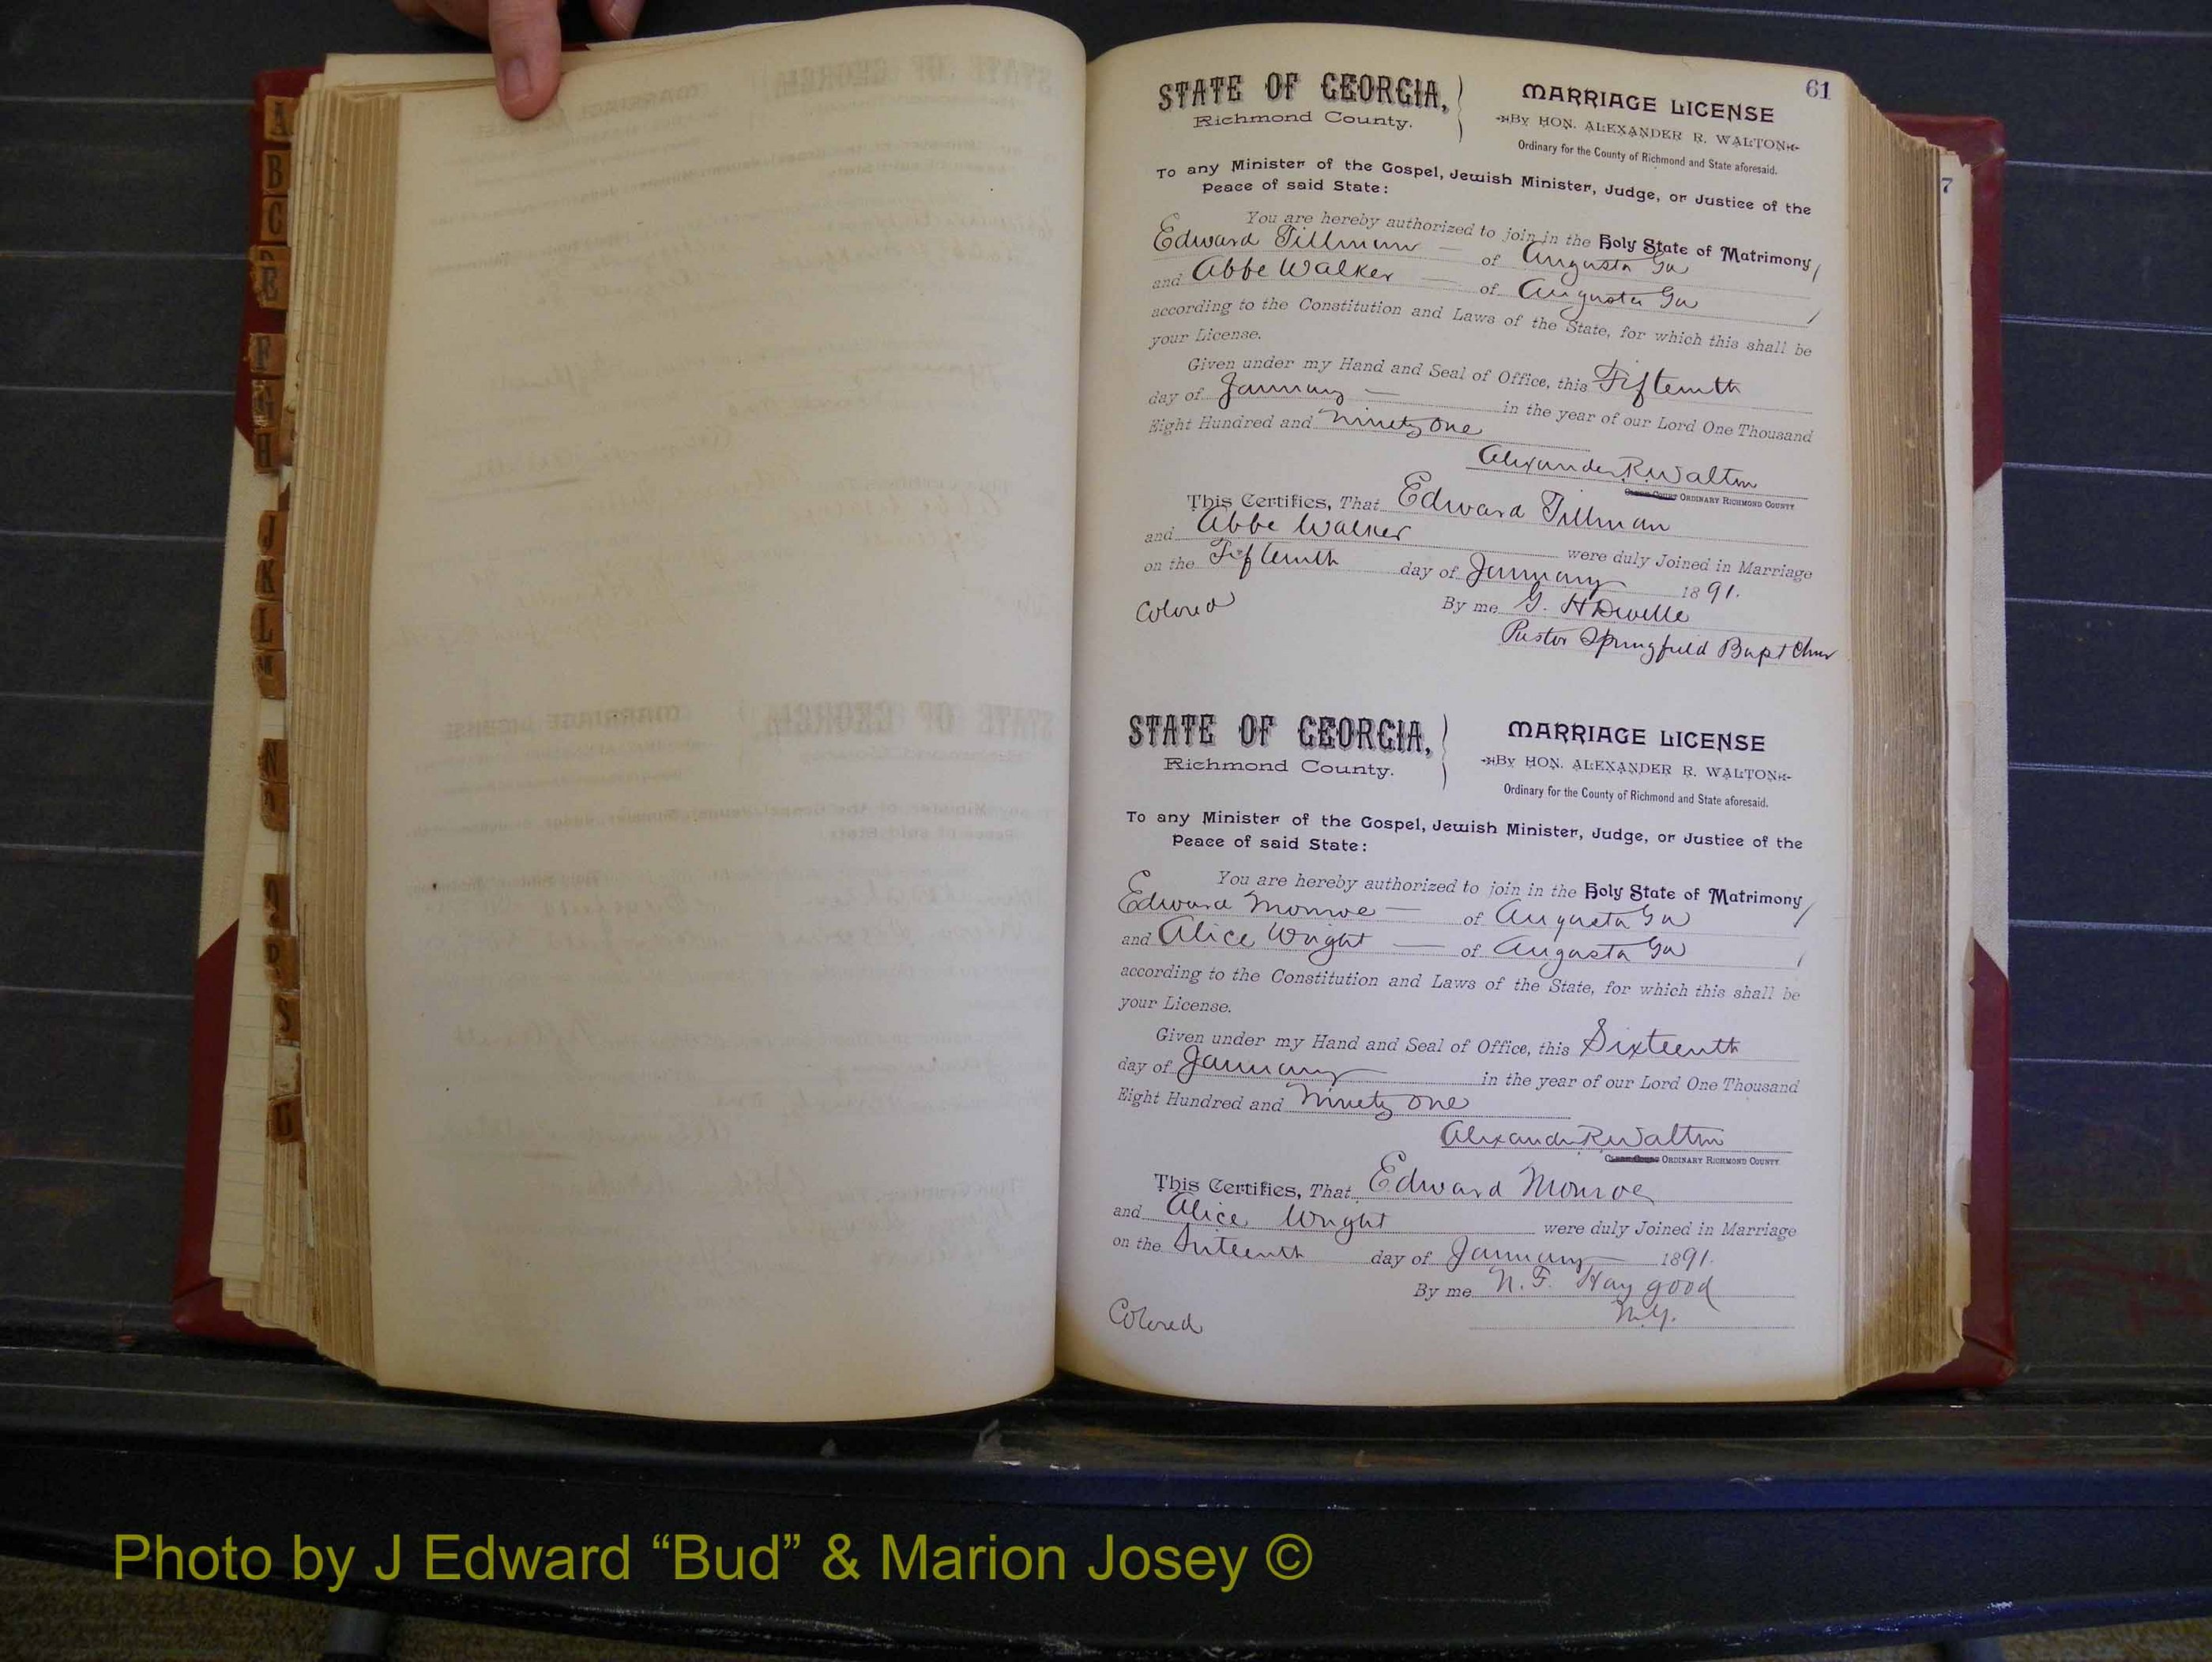 61
STATE OF GEORGIA,
Richmond County.
MARRIAGE LICENSE
By HON. ALEXANDER R. WALTON
Ordinary for the County of Richmond and State aforesaid.
To any Minister of the Gospel, Jewish Minister, Judge, or Justice of the
Peace of said State:
You are hereby authorized to join in the Holy State of Matrimony
Edward Tillman of Augusta Ga
and Abbe Walker of Augusta Ga
according to the Constitution and Laws of the State, for which this shall be
your License.
Given under my Hand and Seal of Office, this Fifteenth
day of January in the year of our Lord One Thousand
Eight Hundred and Ninety One
Alexander R Walton
ORDINARY RICHMOND COUNTY
This Certifies, That Edward Tillman
and Abbe Walker were duly Joined in Marriage
on the Fifteenth day of January 1891.
Colored
By me G. H Dwelle
Pastor Springfield Bapt Chur
STATE OF GEORGIA,
Richmond County.
MARRIAGE LICENSE
By HON. ALEXANDER R. WALTON
Ordinary for the County of Richmond and State aforesaid.
To any Minister of the Gospel, Jewish Minister, Judge, or Justice of the
Peace of said State:
You are hereby authorized to join in the Holy State of Matrimony
Edward Monroe of Augusta Ga
and Alice Wright of Augusta Ga
according to the Constitution and Laws of the State, for which this shall be
your License.
Given under my Hand and Seal of Office, this Sixteenth
day of January in the year of our Lord One Thousand
Eight Hundred and Ninety One
Alexander R Walton
ORDINARY RICHMOND COUNTY.
This Certifies, That Edward Monroe
and Alice Wright were duly Joined in Marriage
on the Sixteenth day of January 1891.
By me N. F. Haygood
M.G.
Colored
7
A
B
C
E
F
G
H
J
K
L
M
N
O
P
R
S
G
Photo by J Edward “Bud” & Marion Josey ©